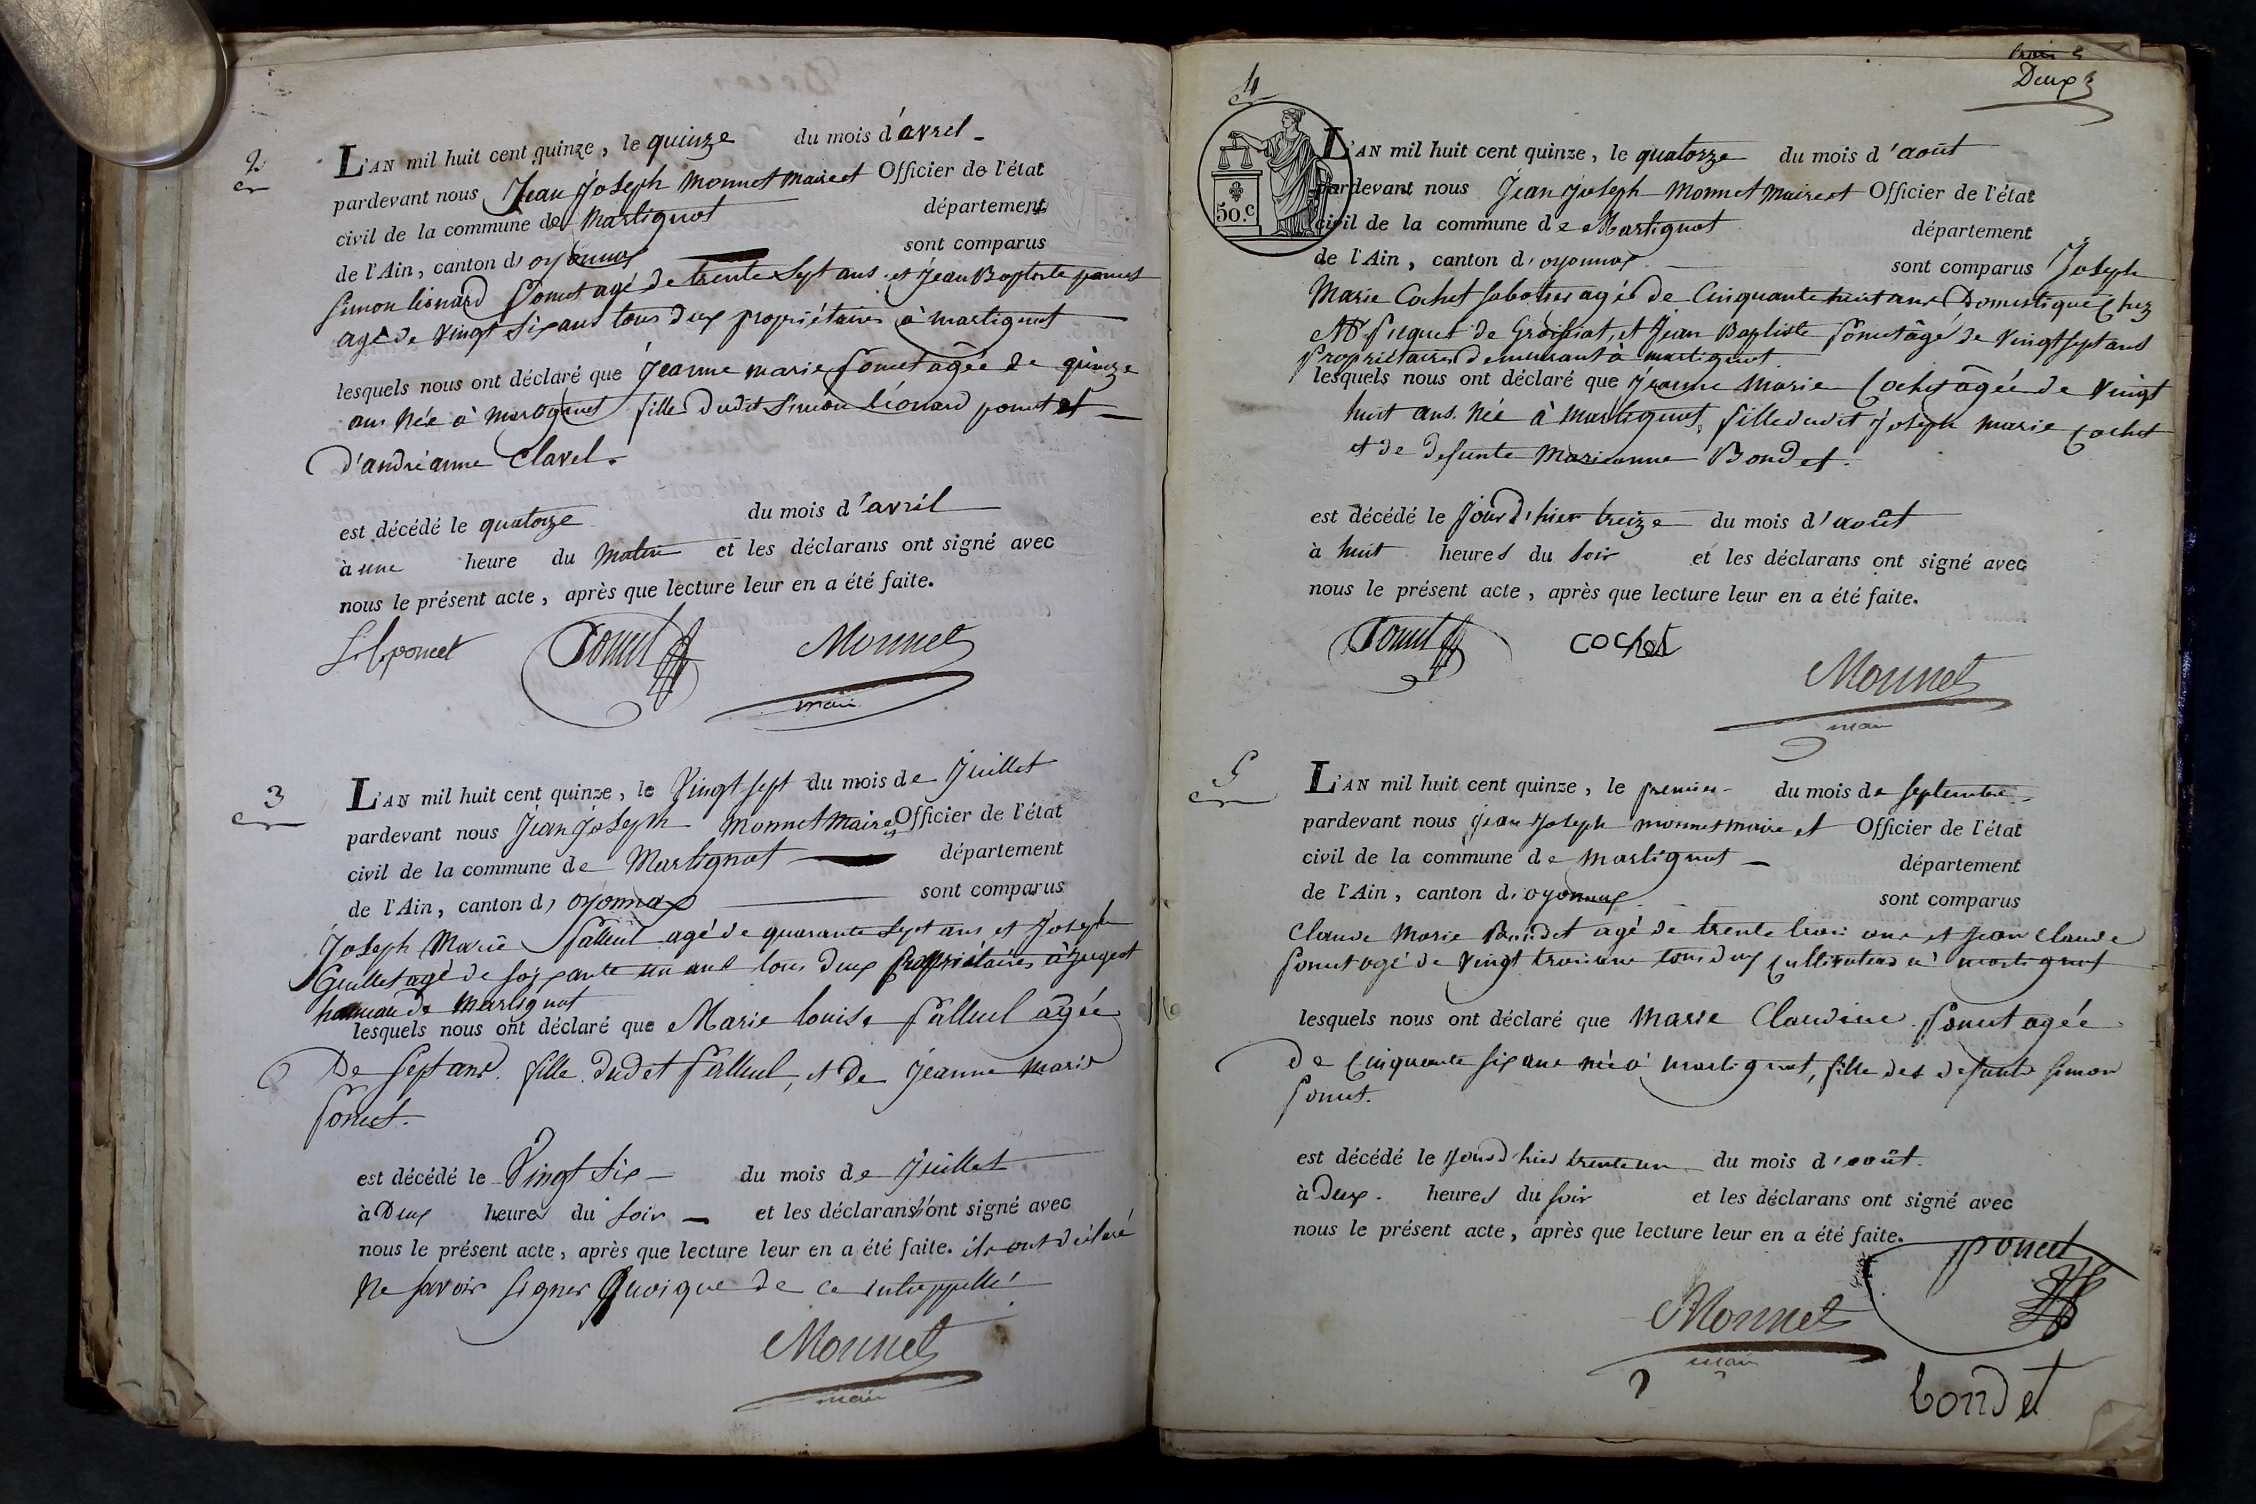 2
L'AN mil huit cent quinze, le quinze du mois d'avrel
pardevant nous Jean Joseph Monnet Maire et Officier de l'état
civil de la commune de Martignat département
de l'Ain, canton d'oyonnax sont comparus
Simon léonard Poncet agé de trente Sept ans et Jean Baptiste poncet
agé de vingt six ans tous deux propriétaires à martignat
lesquels nous ont déclaré que Jeanne marie Poncet âgée de quinze
ans Née à Martignat fille dudit Simon Léonard poncet et
d'andréanne Clavel.
est décédé le quatorze du mois d'avril
à une heure du Matin et les déclarans ont signé avec
nous le présent acte, après que lecture leur en a été faite.
S. l. poncet Poncet Monnet
maire
3
L'AN mil huit cent quinze, le Vingt sept du mois de Juillet
pardevant nous Jean Joseph Monnet Maire et Officier de l'état
civil de la commune de Martignat département
de l'Ain, canton d'oyonnax sont comparus
Joseph Marie falleul agé de quarante Sept ans et Joseph
Guillet agé de soixante un ans tous deux propriétaires à
hameau de Martignat
lesquels nous ont déclaré que Marie louise falleul agée
De Sept ans. fille dudet falleul, et de Jeanne Marie
Poncet.
est décédé le Vingt Six du mois de Juillet
à Deux heures du Soir et les déclarans n'ont signé avec
nous le présent acte, après que lecture leur en a été faite. ils ont déclaré
Ne savoir signer Quoique de ce interppellé
Monnet
maire
Deux
4
50.c
L'AN mil huit cent quinze, le quatorze du mois d'août
pardevant nous Jean Joseph Monnet Maire et Officier de l'état
civil de la commune de Martignat département
de l'Ain, canton d'oyonnax sont comparus Joseph
Marie Cochet Sabotier agé de Cinquante huit ans Domestique Chez
Mr de Groissiat, et Jean Baptiste Poncet âgé de Vingt sept ans
Propriétaires demeurant à martignat
lesquels nous ont déclaré que Jeanne Marie Cochet âgée de Vingt
huit ans. Née à Martignat, fille dudit Joseph Marie Cochet
et de defunte Marieanne Bondet.
est décédé le Jour d'hier treize du mois d'août
à huit heures du Soir et les déclarans ont signé avec
nous le présent acte, après que lecture leur en a été faite.
Poncet cochet
Monnet
maire
5
L'AN mil huit cent quinze, le premier du mois de Septembre
pardevant nous Jean Joseph monnet maire et Officier de l'état
civil de la commune de Martignat département
de l'Ain, canton d'oyonnax sont comparus
Claude Marie Bondet agé de trente trois ans et Jean Claude
Poncet agé de Vingt trois ans tous deux Cultivateurs à martignat
lesquels nous ont déclaré que Marie Claudine Poncet agée
de Cinquante six ans née à martignat, fille des defunts Simon
Poncet.
est décédé le Jour d'hier trente un du mois d'août
à Deux heures du soir et les déclarans ont signé avec
nous le présent acte, après que lecture leur en a été faite.
poncet
Monnet
maire
bondet